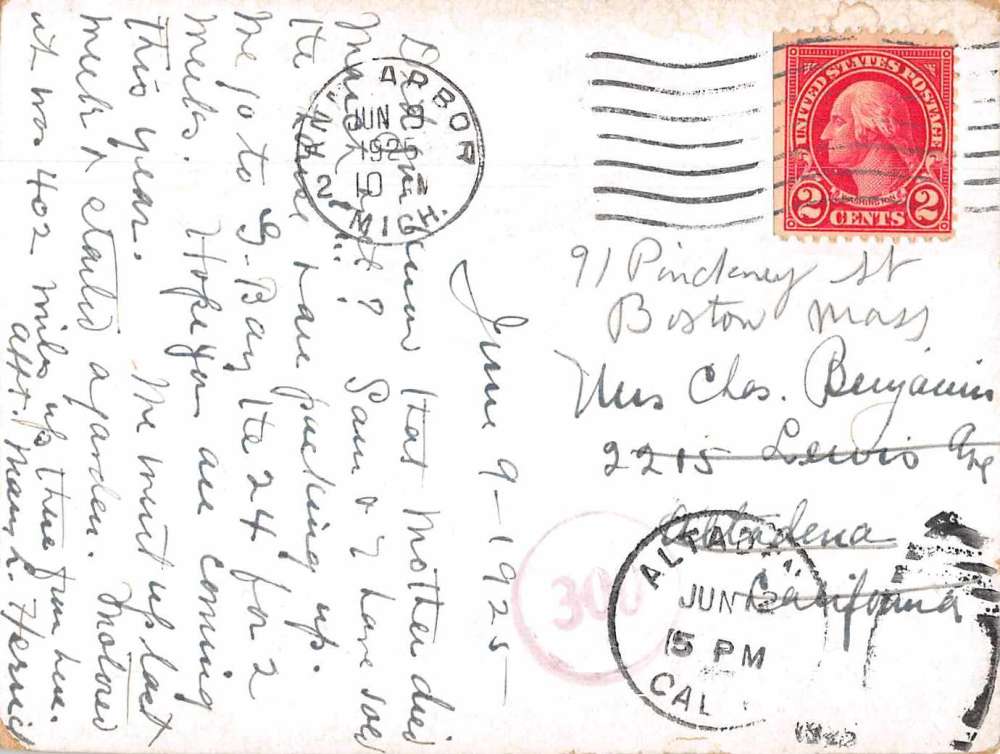 June 9-1925-
Did you know that Mother died
March ? Sam & I have sold
the have packing up.
We go to G-Bay the 24 for 2
weeks. Hope you are coming
this year. We went up last
week & started a garden. Motored
it was 402 miles up there from here.
Mary L. Herrick
ANN ARBOR
JUN
1925
10
2
MICH.
UNITED STATES POSTAGE
WASHINGTON
2 CENTS 2
91 Pinckney St
Boston Mass
Mrs Chas. Benjamin
2215 Lewis Ave
Altadena
California
300
ALTADENA
JUN
15 PM
CAL